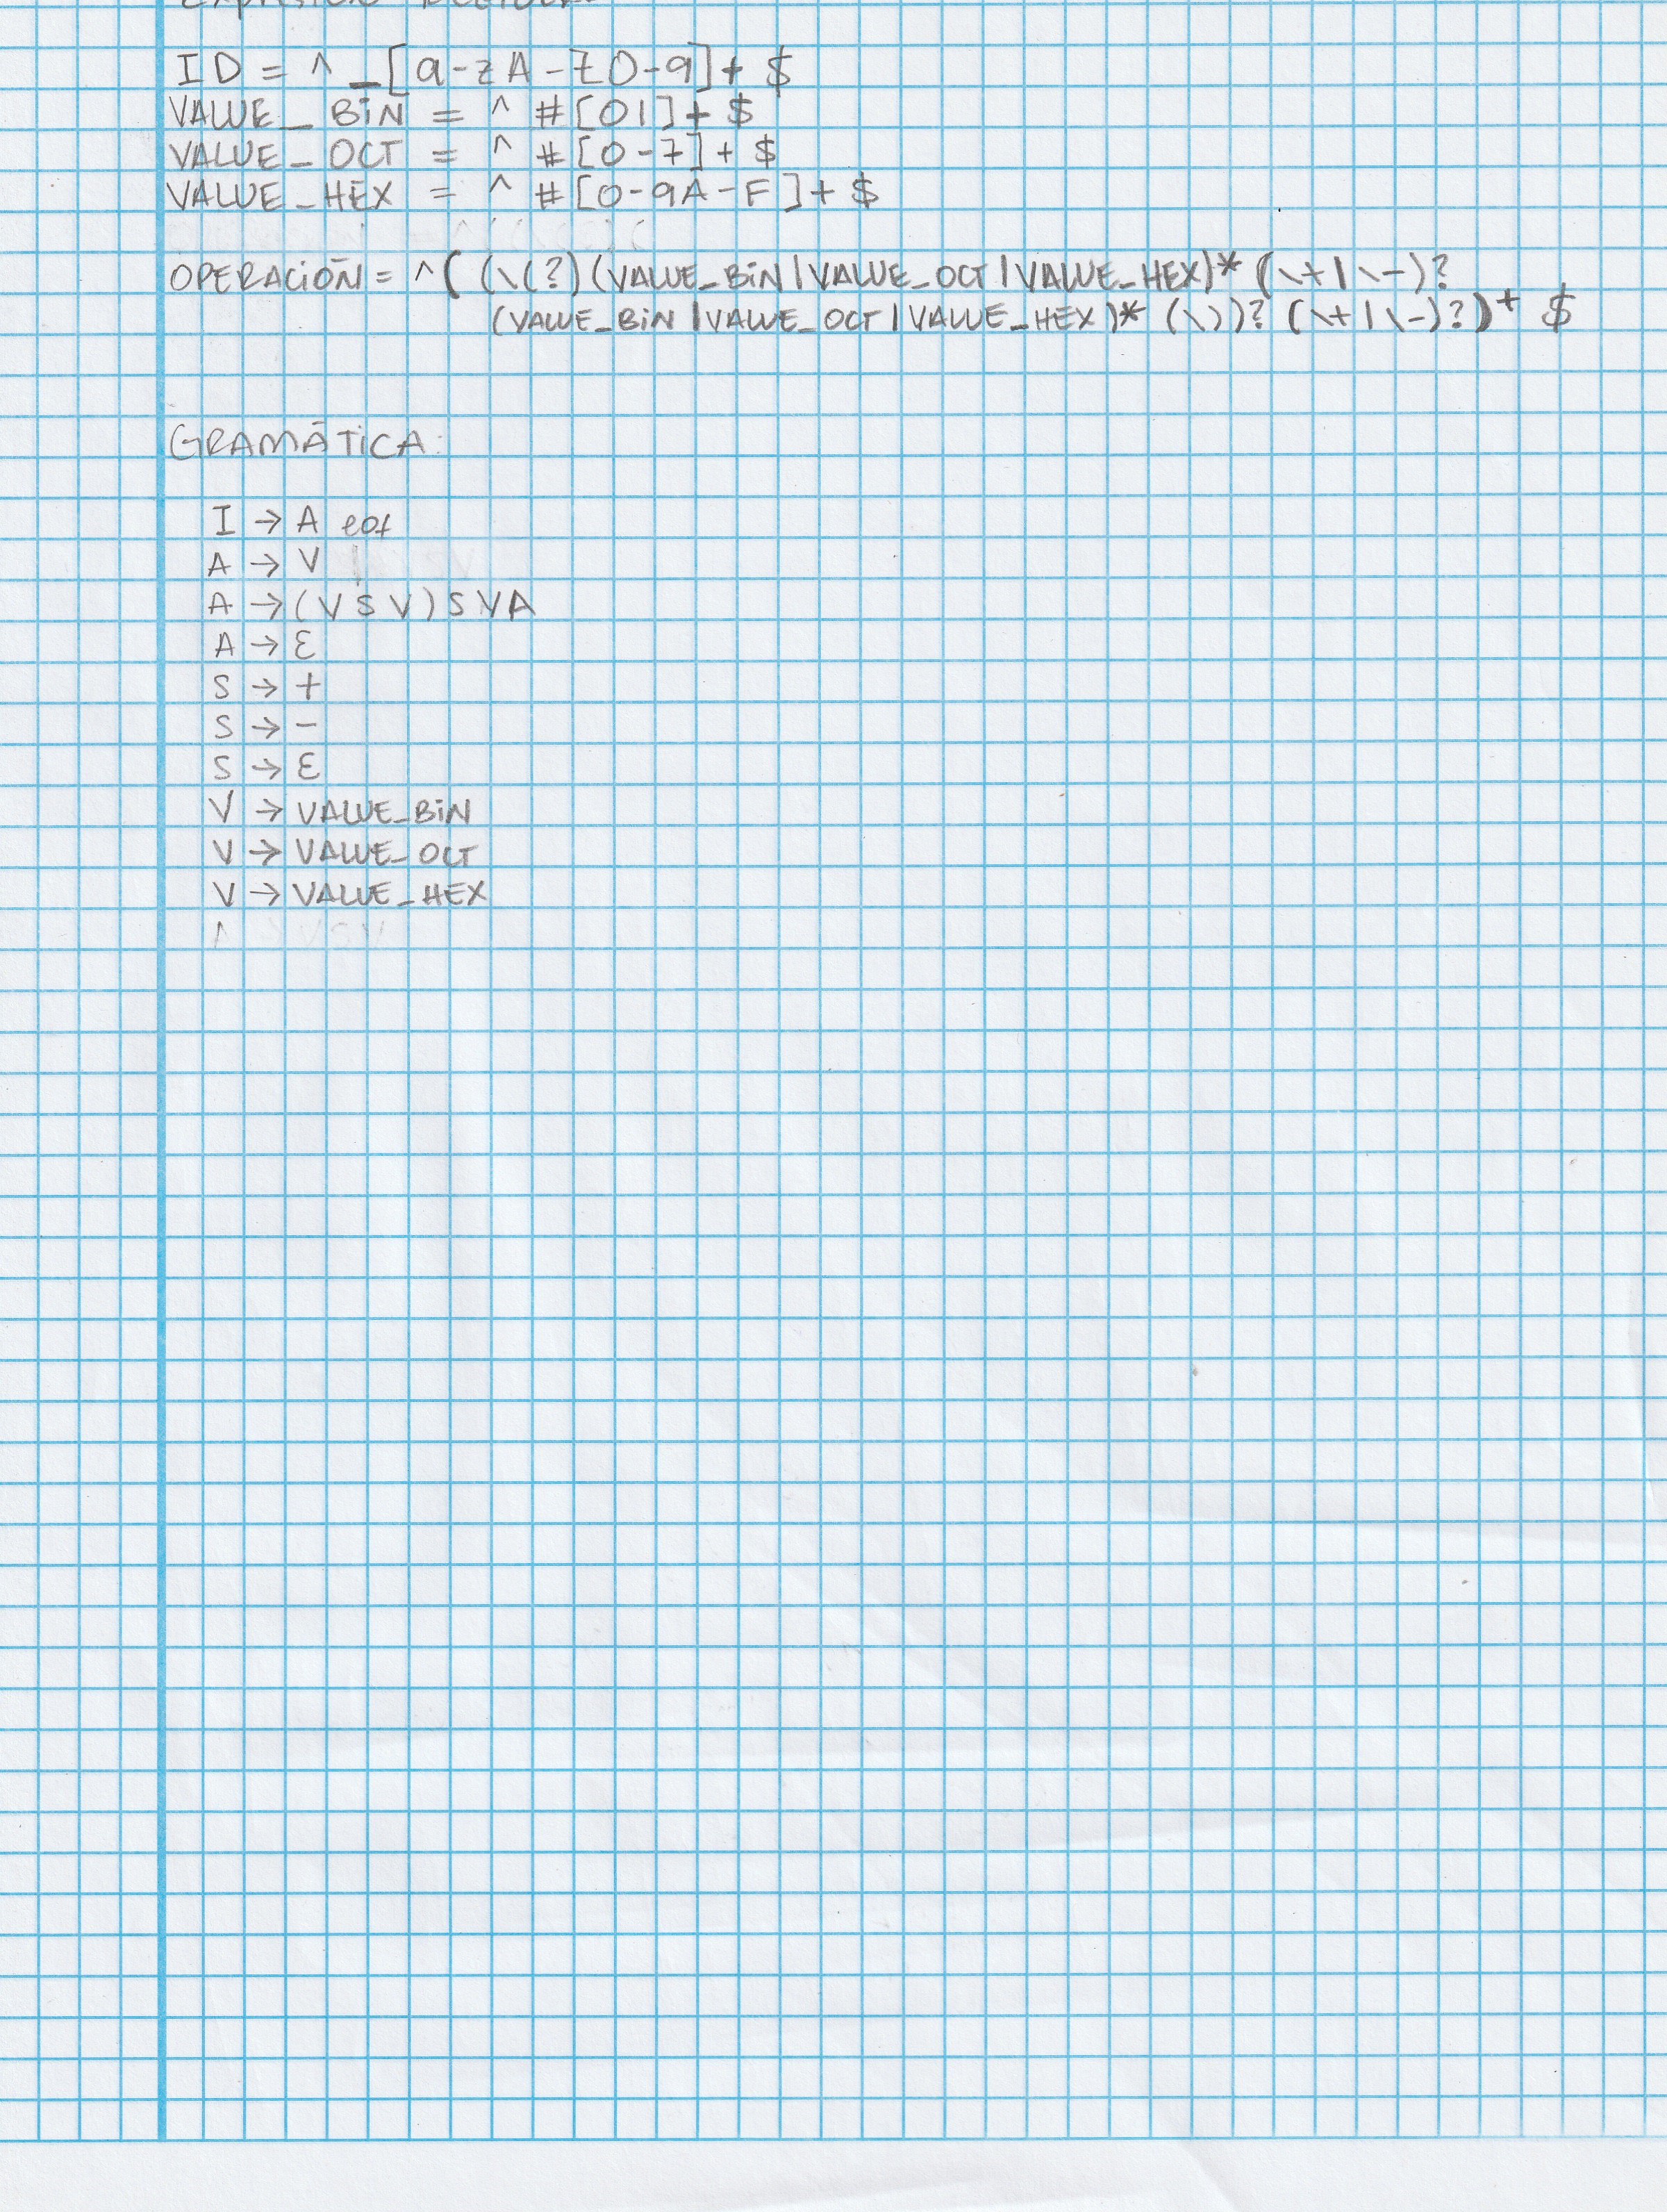 ID = ^ _[a-zA-Z0-9]+ $
VALUE_BIN = ^ #[01]+ $
VALUE_OCT = ^ #[0-7]+ $
VALUE_HEX = ^ #[0-9A-F]+ $
OPERACIÓN = ^( (\(?)(VALUE_BIN|VALUE_OCT|VALUE_HEX)* (\+|\-)?
(VALUE_BIN|VALUE_OCT|VALUE_HEX)* (\))? (\+|\-)?)+ $
GRAMÁTICA:
I → A eof
A → V
A → (V S V) S V A
A → ε
S → +
S → -
S → ε
V → VALUE_BIN
V → VALUE_OCT
V → VALUE_HEX